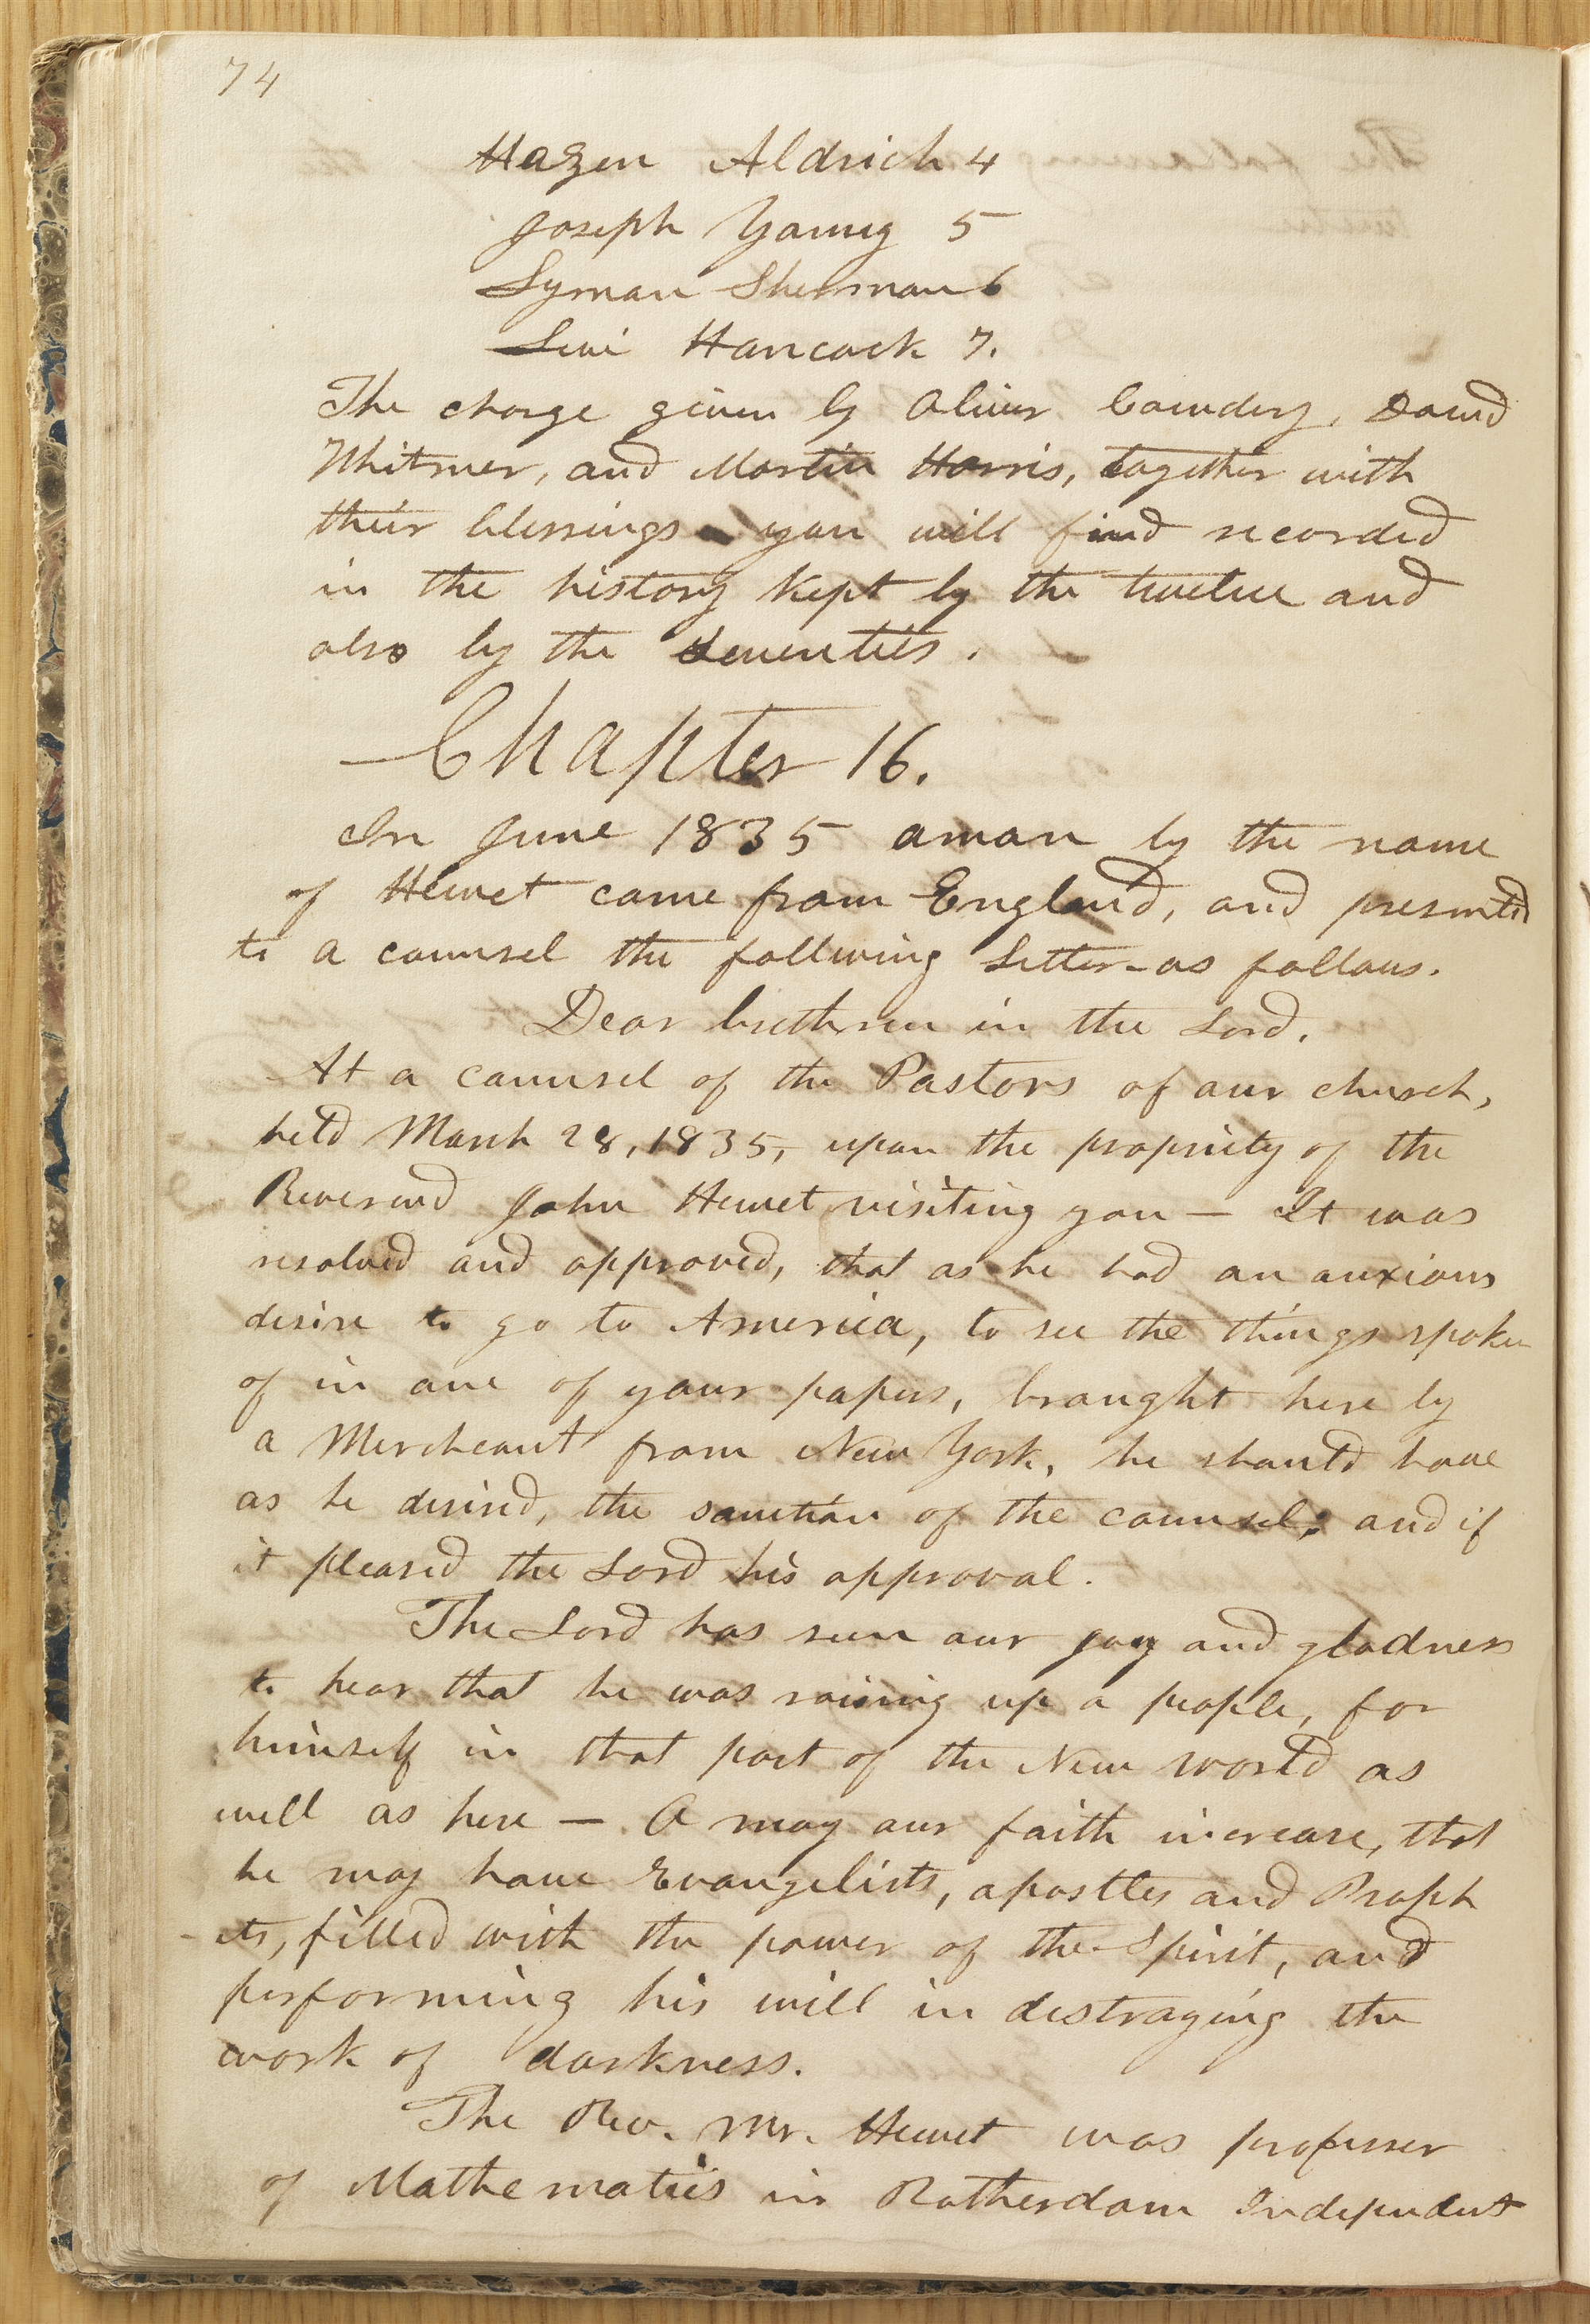 74
Hazen Aldrich 4
Joseph Young 5
Lyman Sherman 6
Levi Hancock 7.
The charge given by Oliver Cowdery, David
Whitmer, and Martin Harris, together with
their blessings you will find recorded
in the history kept by the twelve and
also by the seventies.
Chapter 16.
In June 1835 a man by the name
of Hewet came from England, and presented
to a counsel the follwing letter - as follows.
Dear brethren in the Lord.
At a counsel of the Pastors of our church,
held March 28, 1835, upon the propriety of the
Reverend John Hewet visiting you — It was
resolved and approved, that as he had an anxious
desire to go to America, to see the things spoken
of in one of your papers, brought here by
a Merchant from New York, he should have
as he desired, the sanction of the counsel; and if
it pleased the Lord his approval.
The Lord has seen our joy and gladness
to hear that he was raising up a people, for
himself in that part of the New world as
well as here — O may our faith increase, that
he may have Evangelists, apostles and Proph
-ets, filled with the power of the Spirit, and
performing his will in destroying the
work of darkness.
The Rev. Mr. Hewet was professer
of Mathematics in Rotherdam Independent